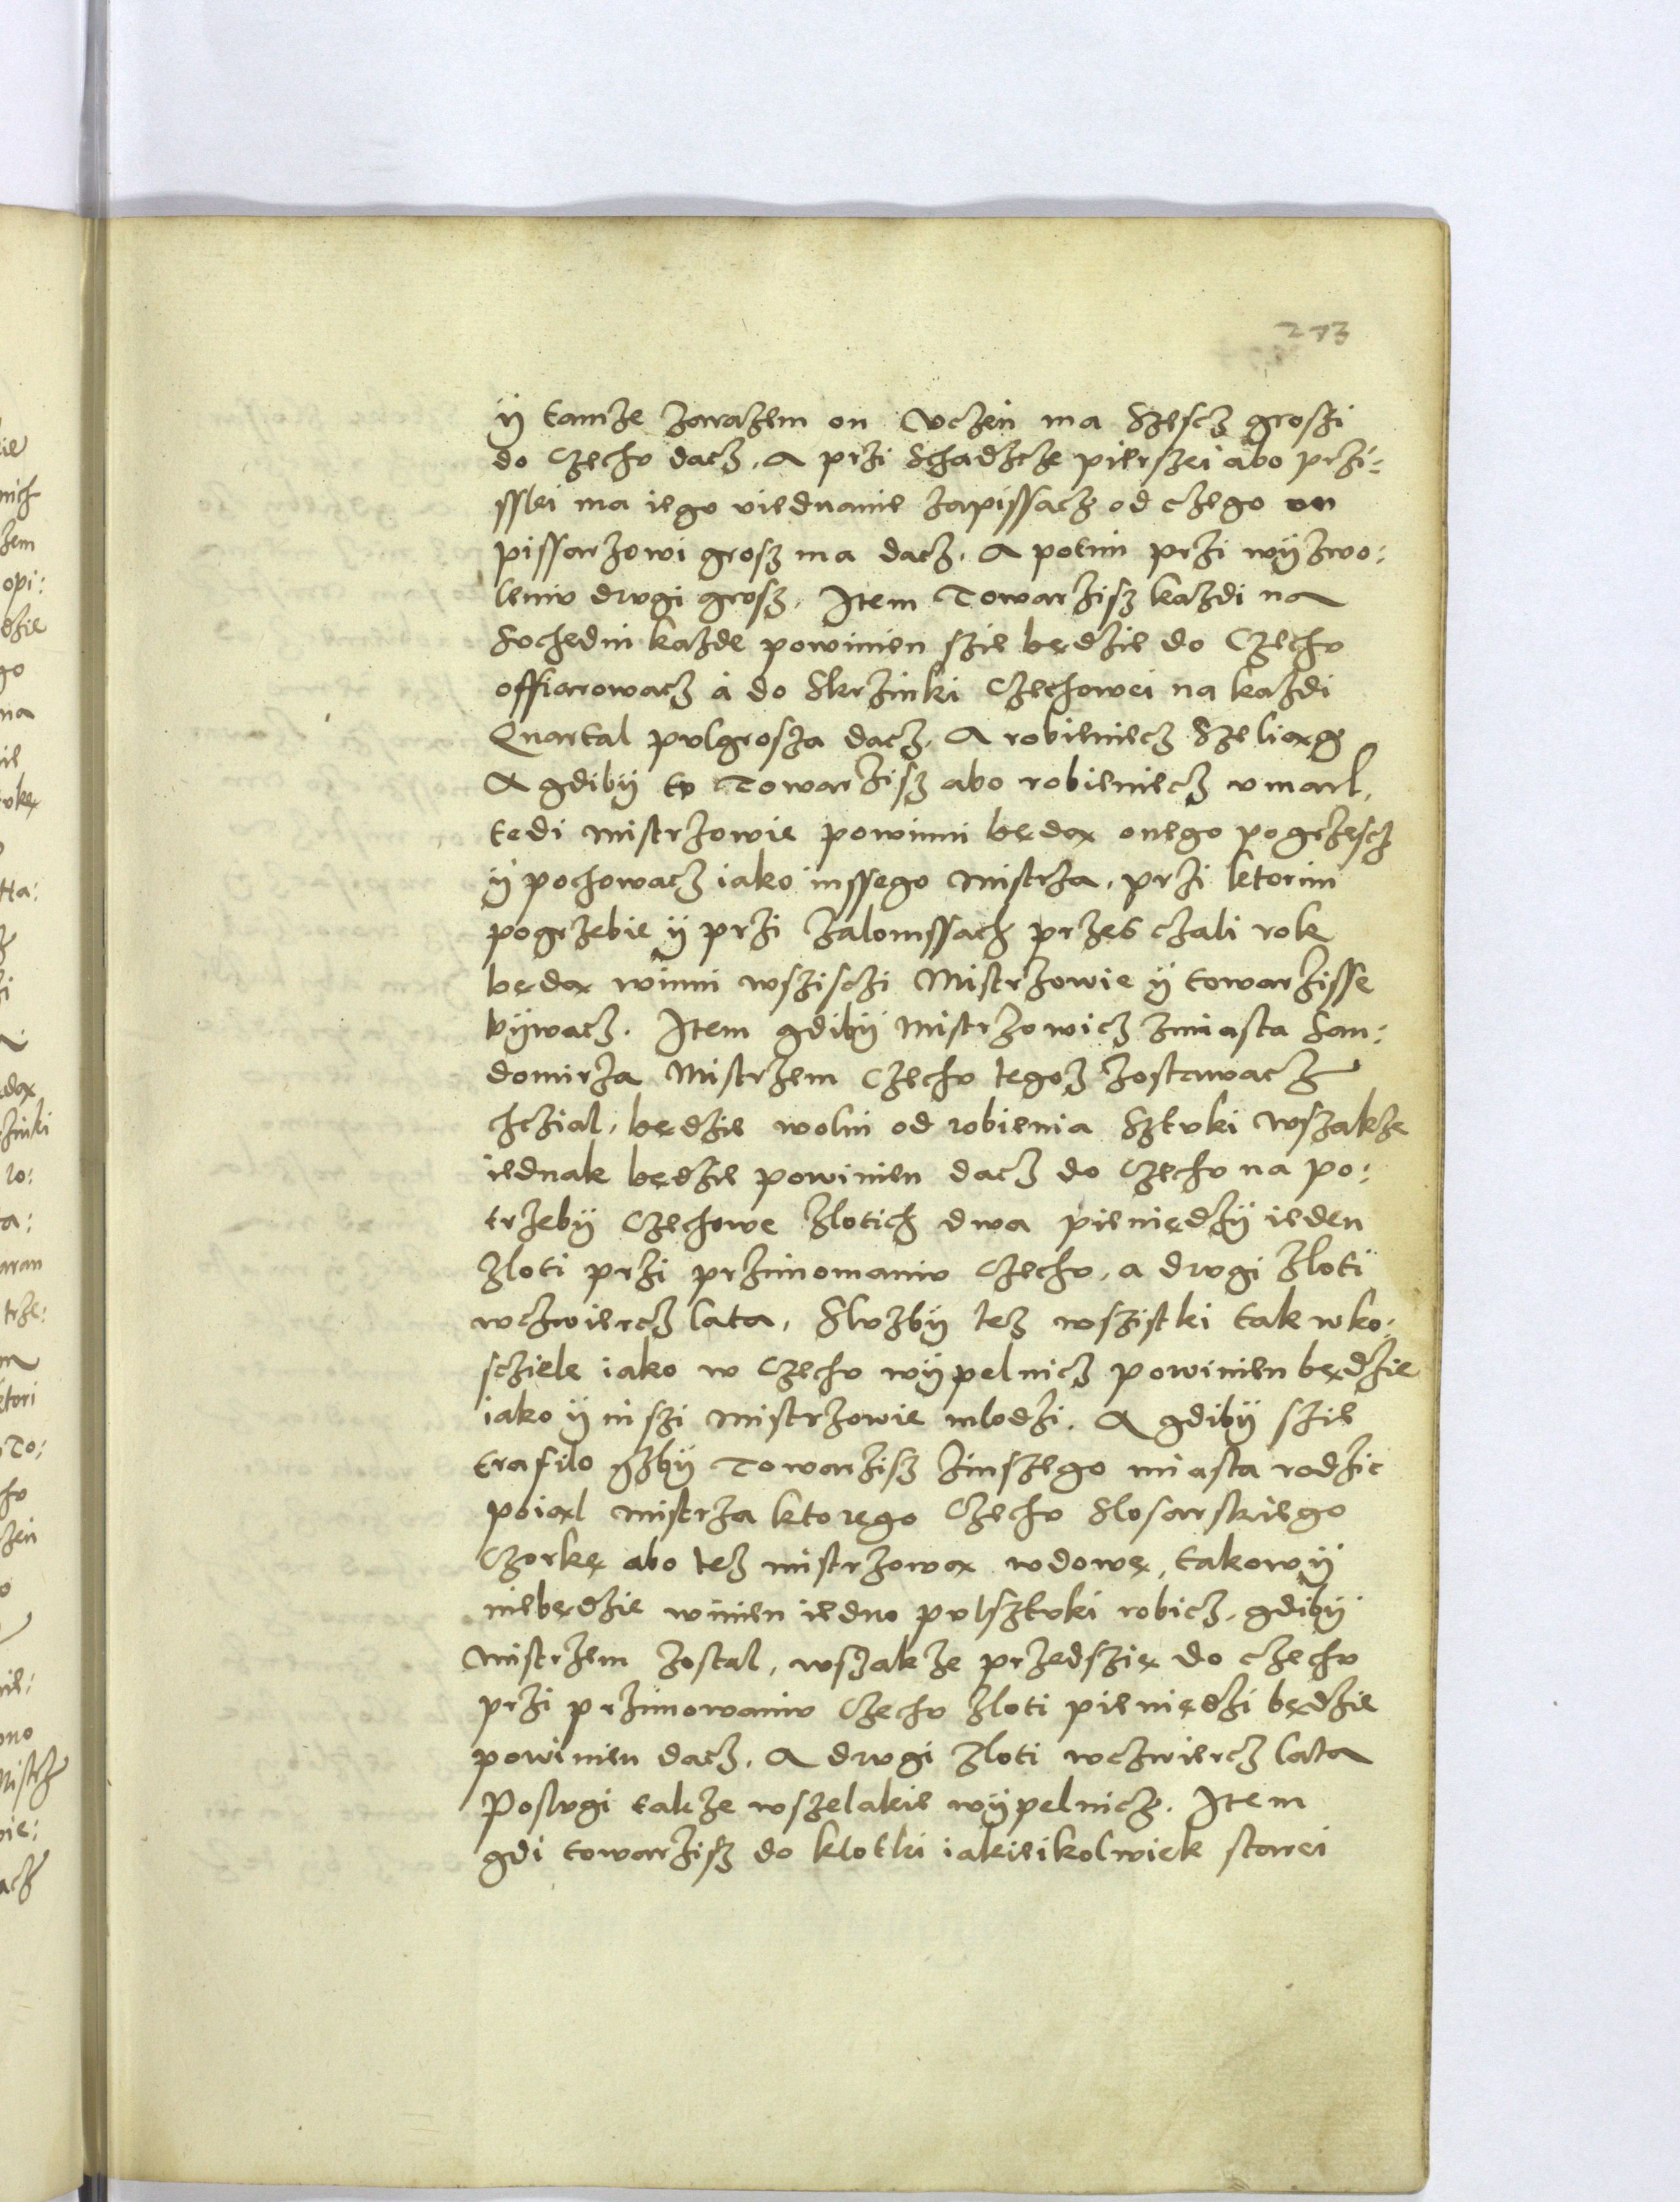 273
ÿ tamże zarazem on Vczen ma Szescz groszi
do Czechv dacz. A przi Schadzcze pierszei abo przi=
sslei ma iego viednanie zapissacz od czego on
pissarzowi grosz ma dacz. A potim przi wÿzwo:
leniv drvgi grosz. Item Towarzisz kazdi na
Svchedni kazde powinien szie będzie do Czechv
offiarowacz á do Skrzinki Czechowei na kazdi
Quartal pvlgrosza dacz. A robieniecz Szeliąg
A gdibÿ tℯn Towarzisz abo robieniecz vmarl,
tedi mistrzowie powinni będą onego pogrzescz
ÿ pochowacz iako inssego mistrza, przi ktorim
pogrzebie ÿ przi zalomssach przes czali rok
będą winni wsziszczi Mistrzowie ÿ towarzisse
bÿwacz. Item gdibÿ mistrzowicz zmiasta San:
domirza Mistrzem Czechv tegoz zostawacz
chczial, będzie wolni od robienia Sztvki wszakze
iednak będzie powinien dacz do Czechv na po:
trzebÿ Czechowe zlotich dwa pieniędzÿ ieden
zloti przi przimowaniv Czechv, a drvgi zloti
wczwiercz lata, Slvzbÿ tez wszistki tak wko:
scziele iako w Czechv wÿpelnicz powinien będzie
iako ÿ niszi mistrzowie mlodzi. A gdibÿ szie
trafilo yzbÿ Towarzisz zinszego miasta rodzic
poiąl mistrza ktorego Czechv Slosarskiego
Czorkę abo tez mistrzową wdowę, takowÿ
niebędzie winien iedno pvlsztvki robicz, gdibÿ
mistrzem zostal, wszakze przedszię do czechv
przi przimowaniv Czechv zloti pieniędzi będzie
powinien dacz. A drvgi zloti wczwiercz lata
Poslvgi takze wszelakie wÿpelnicz. Item
gdi towarzisz do klotki iakieikolwiek starei